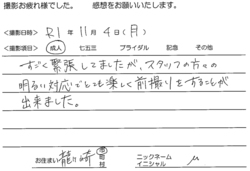 撮影お疲れ様でした。　感想をお願いいたします。
<撮影日時> R1 年 11 月 4 日 (月)
<撮影項目> 成人 七五三 ブライダル 記念 その他
すごく緊張してましたが、スタッフの方々の
明るい対応でとても楽しく前撮りをすることが
出来ました。
お住まい 龍ヶ崎 市 町 村 ニックネーム イニシャル M